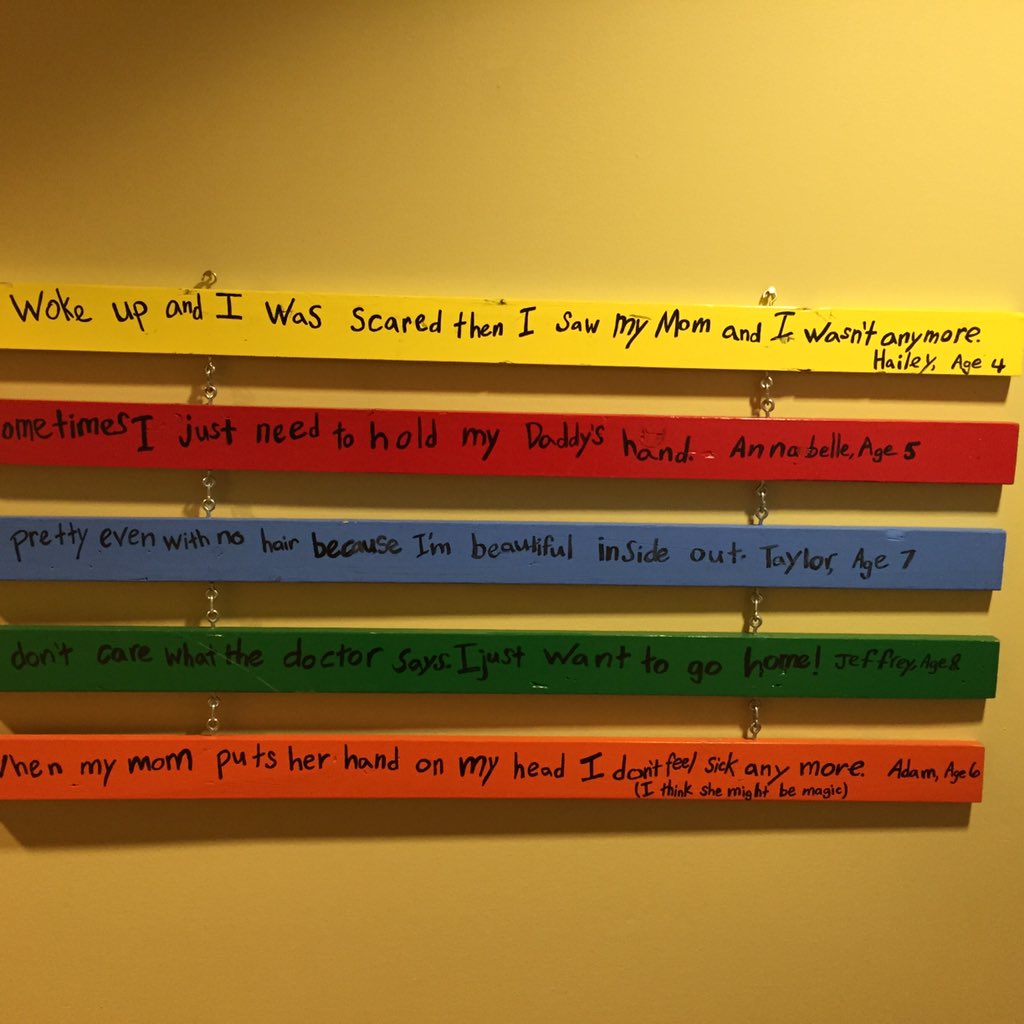 Woke up and I was scared then I saw my Mom and I wasn't anymore.
Hailey, Age 4
ometimes I just need to hold my Daddy's hand. - Annabelle, Age 5
pretty even with no hair because I'm beautiful inside out. Taylor, Age 7
don't care what the doctor says. I just want to go home! Jeffrey, Age 8
hen my mom puts her hand on my head I don't feel sick any more. Adam, Age 6
(I think she might be magic)